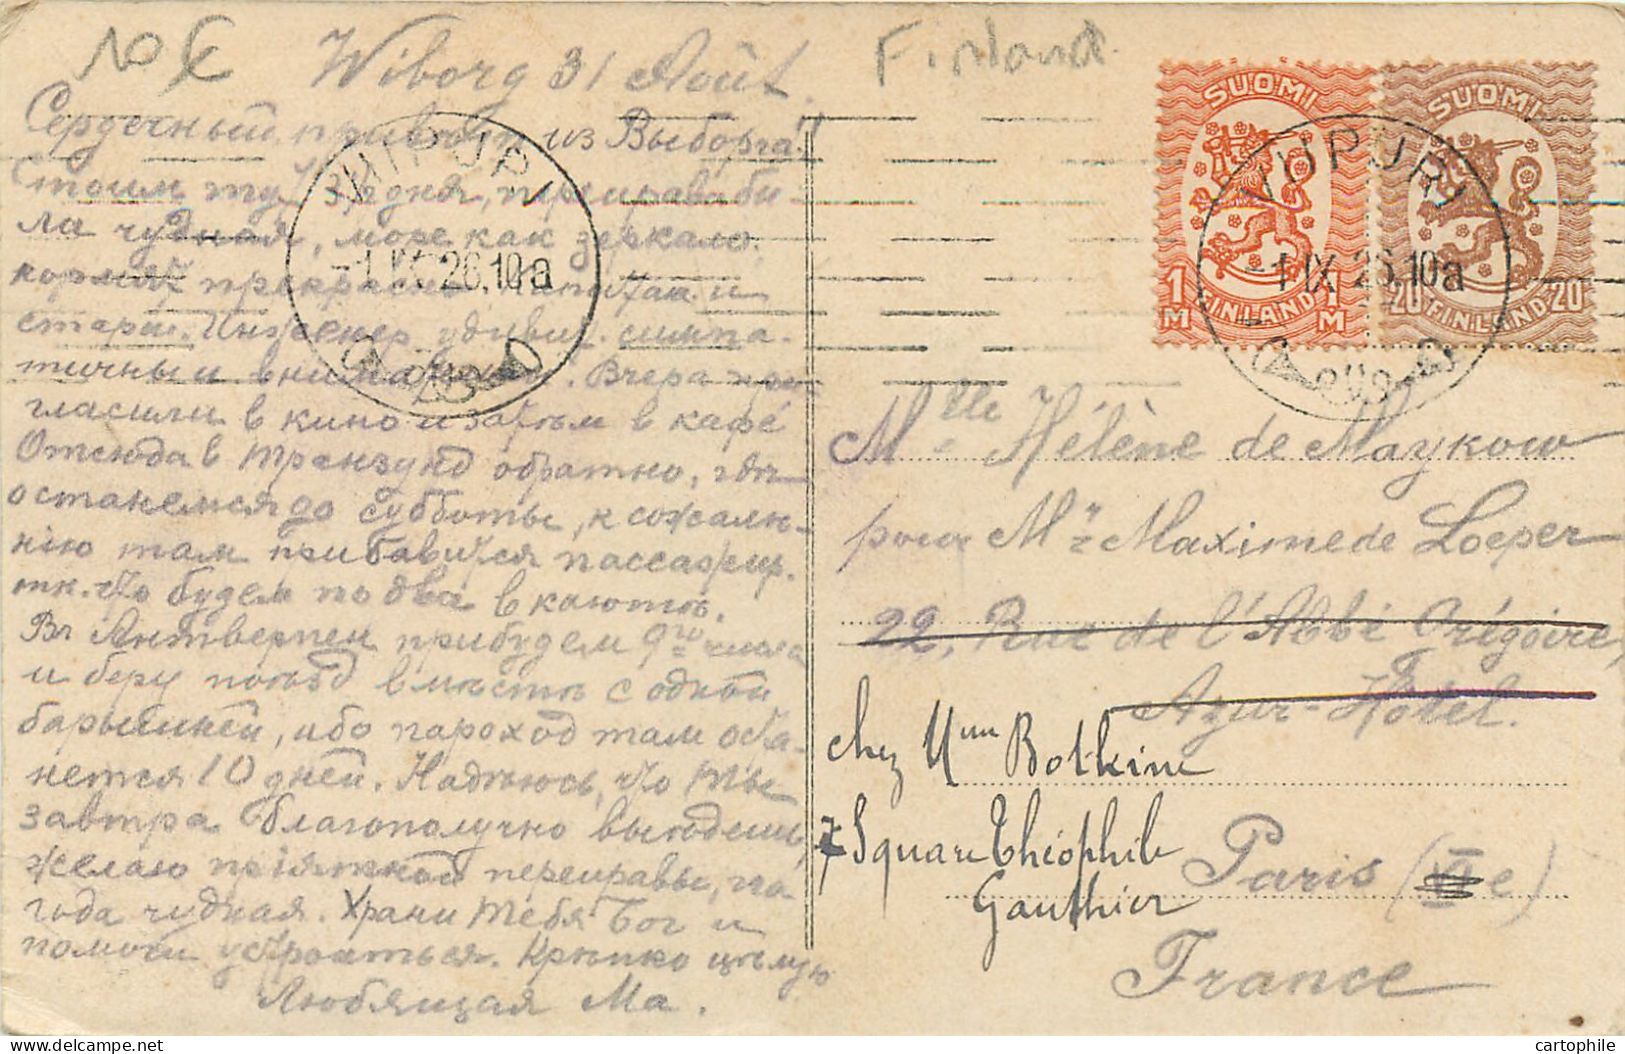 10 €
Wiborg 31 Août
Finland
Сердечный привѣт из Выборга!!
Стоим тут 3й дня, переправа бы-
ла чудная, море как зеркало.
кормят прекрасно. Капитан и
старш. Инженер удивит. симпа-
тичны и внимательны. Вчера при-
гласили в кино и затѣм в кафé
Отсюда в Транзунд обратно, гдѣ
останемся до субботы, к сожалѣ-
нію там прибавится пассажир.
тк. что будем по два в каютѣ.
Въ Антверпен прибудем 9го числа
и беру поѣзд вмѣстѣ с одной
барышней, ибо пароход там оста-
нется 10 дней. Надѣюсь, что Ты
завтра благополучно выѣдешь,
желаю пріятной переправы, по-
года чудная. Храни Тебя Бог и
помоги устроиться. Крѣпко цѣлую
Любящая Ма.
SUOMI
1 M FINLAND 1 M
SUOMI
20 FINLAND 20
VIIPURI
-1 IX 26.10a
VIIPURI
-1 IX 26.10a
Melle Hélène de Maykow
pour Mr Maxime de Loeper
22, Rue de l'Abbé Grégoire,
Azur-Hôtel.
chez Mme Botkine
7 Square Théophile
Gauthier
Paris (VIe)
France
cartophile
www.delcampe.net